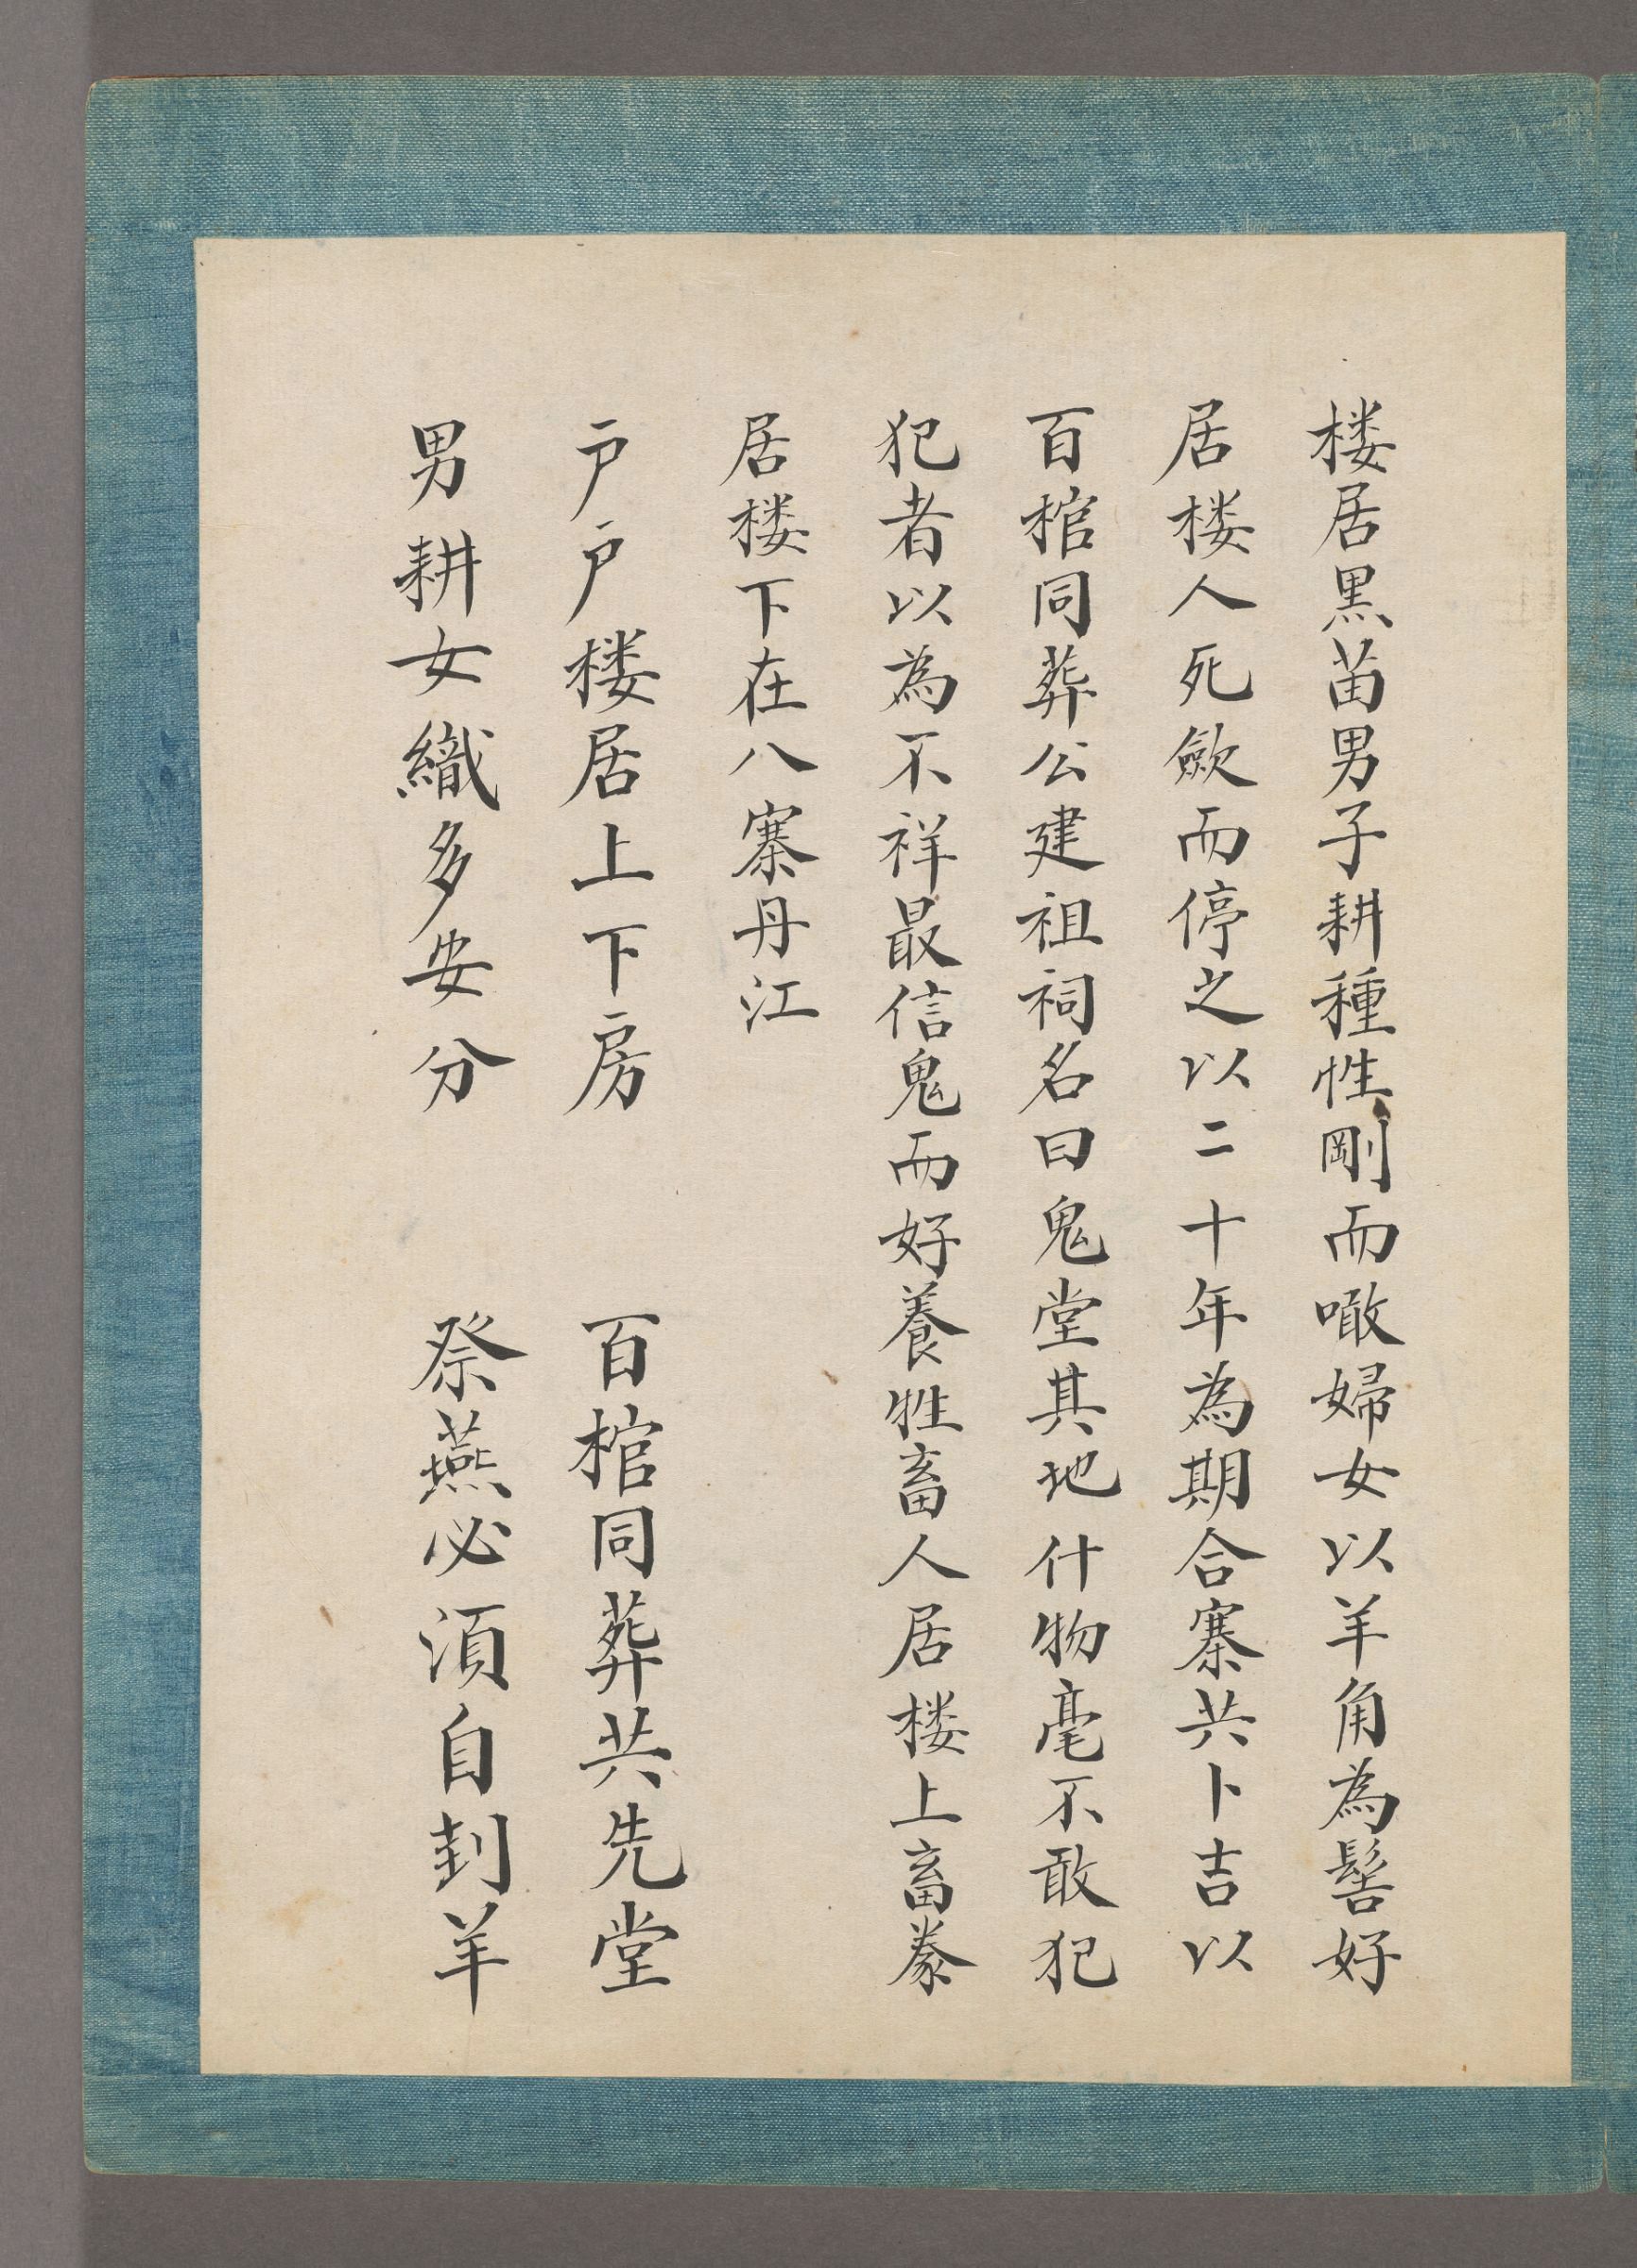 楼居黑苗男子耕種性剛而噉婦女以羊角為髻好
居楼人死歛而停之以二十年為期合寨共卜吉以
百棺同葬公建祖祠名曰鬼堂其地什物毫不敢犯
犯者以為不祥最信鬼而好養牲畜人居楼上畜豢
居楼下在八寨丹江
戶戶楼居上下房 百棺同葬共先堂
男耕女織多安分 祭燕必須自刲羊